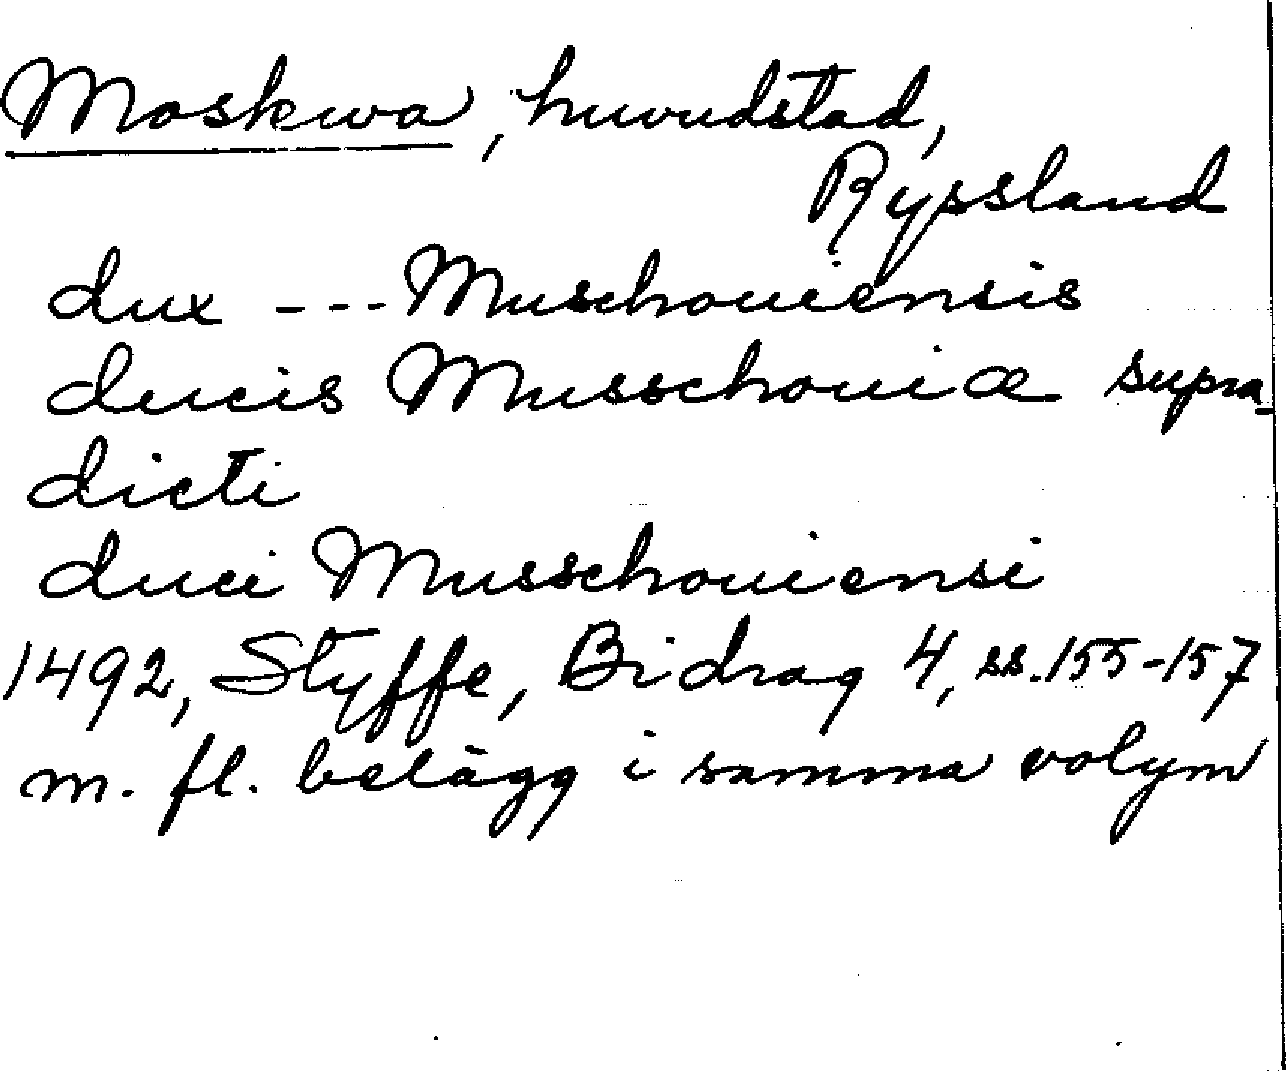 Moskwa, huvudstad,
Ryssland
dux --- Muschouiensis
ducis Musschouiæ supra-
dicti
duci Musschouiensi
1492, Styffe, Bidrag 4, ss. 155-157
m. fl. belägg i samma volym